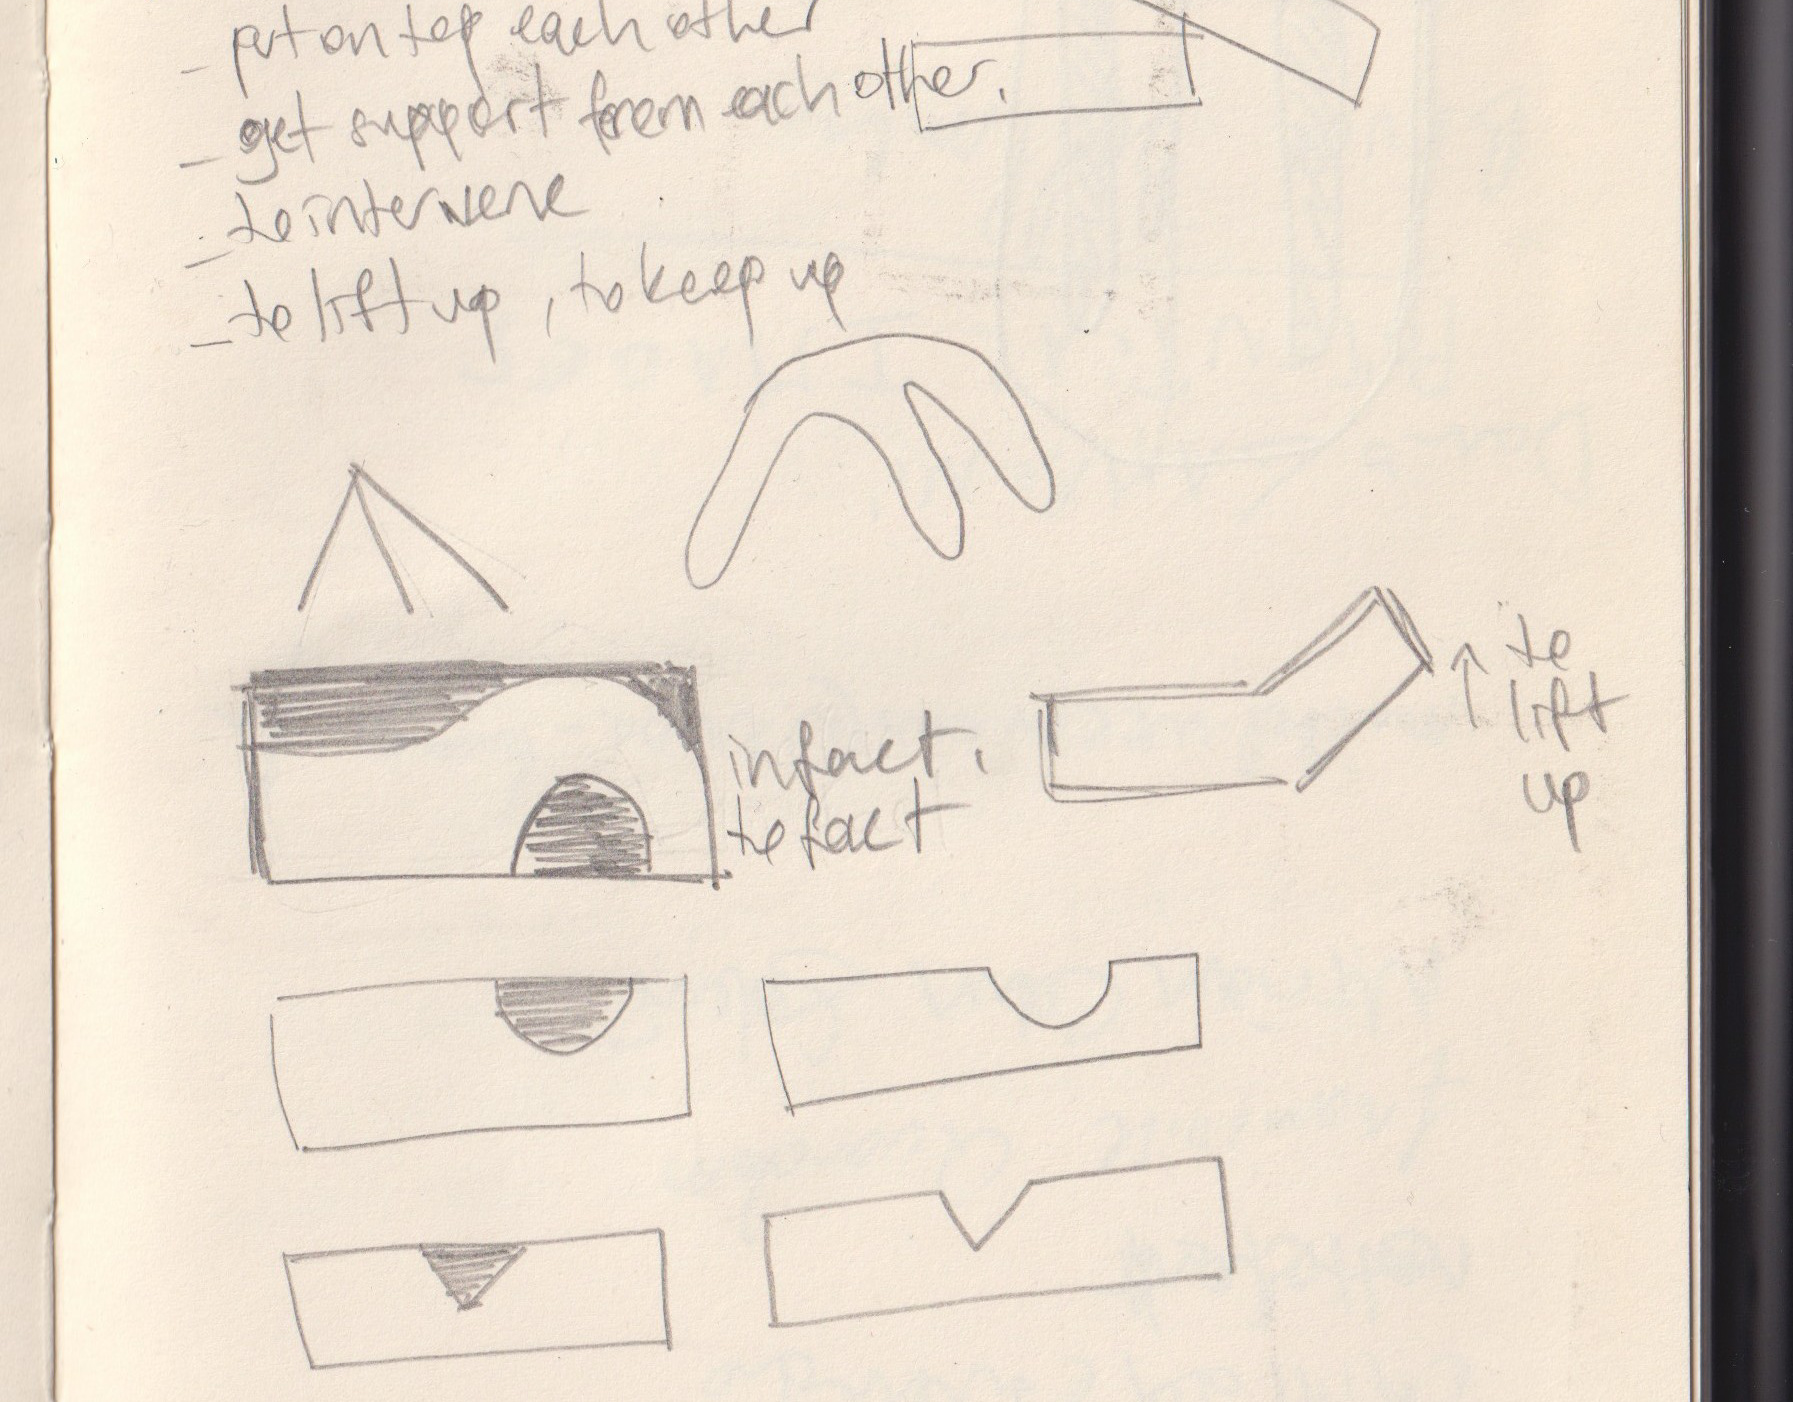 - put on top each other
- get support from each other.
- to intervene
- to lift up, to keep up
to
lift
up
infact.
to fact